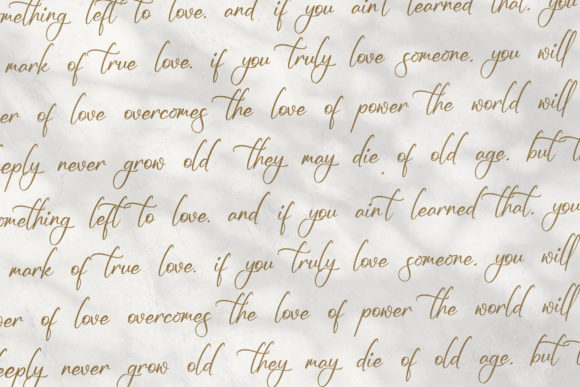 something left to love. and if you ain't learned that. you
mark of true love. if you truly love someone. you will
er of love overcomes the love of power the world will
eeply never grow old they may die. of old age. but
something left to love. and if you ain't learned that. you
mark of true love. if you truly love someone. you will
er of love overcomes the love of power the world will
eeply never grow old they may die of old age. but